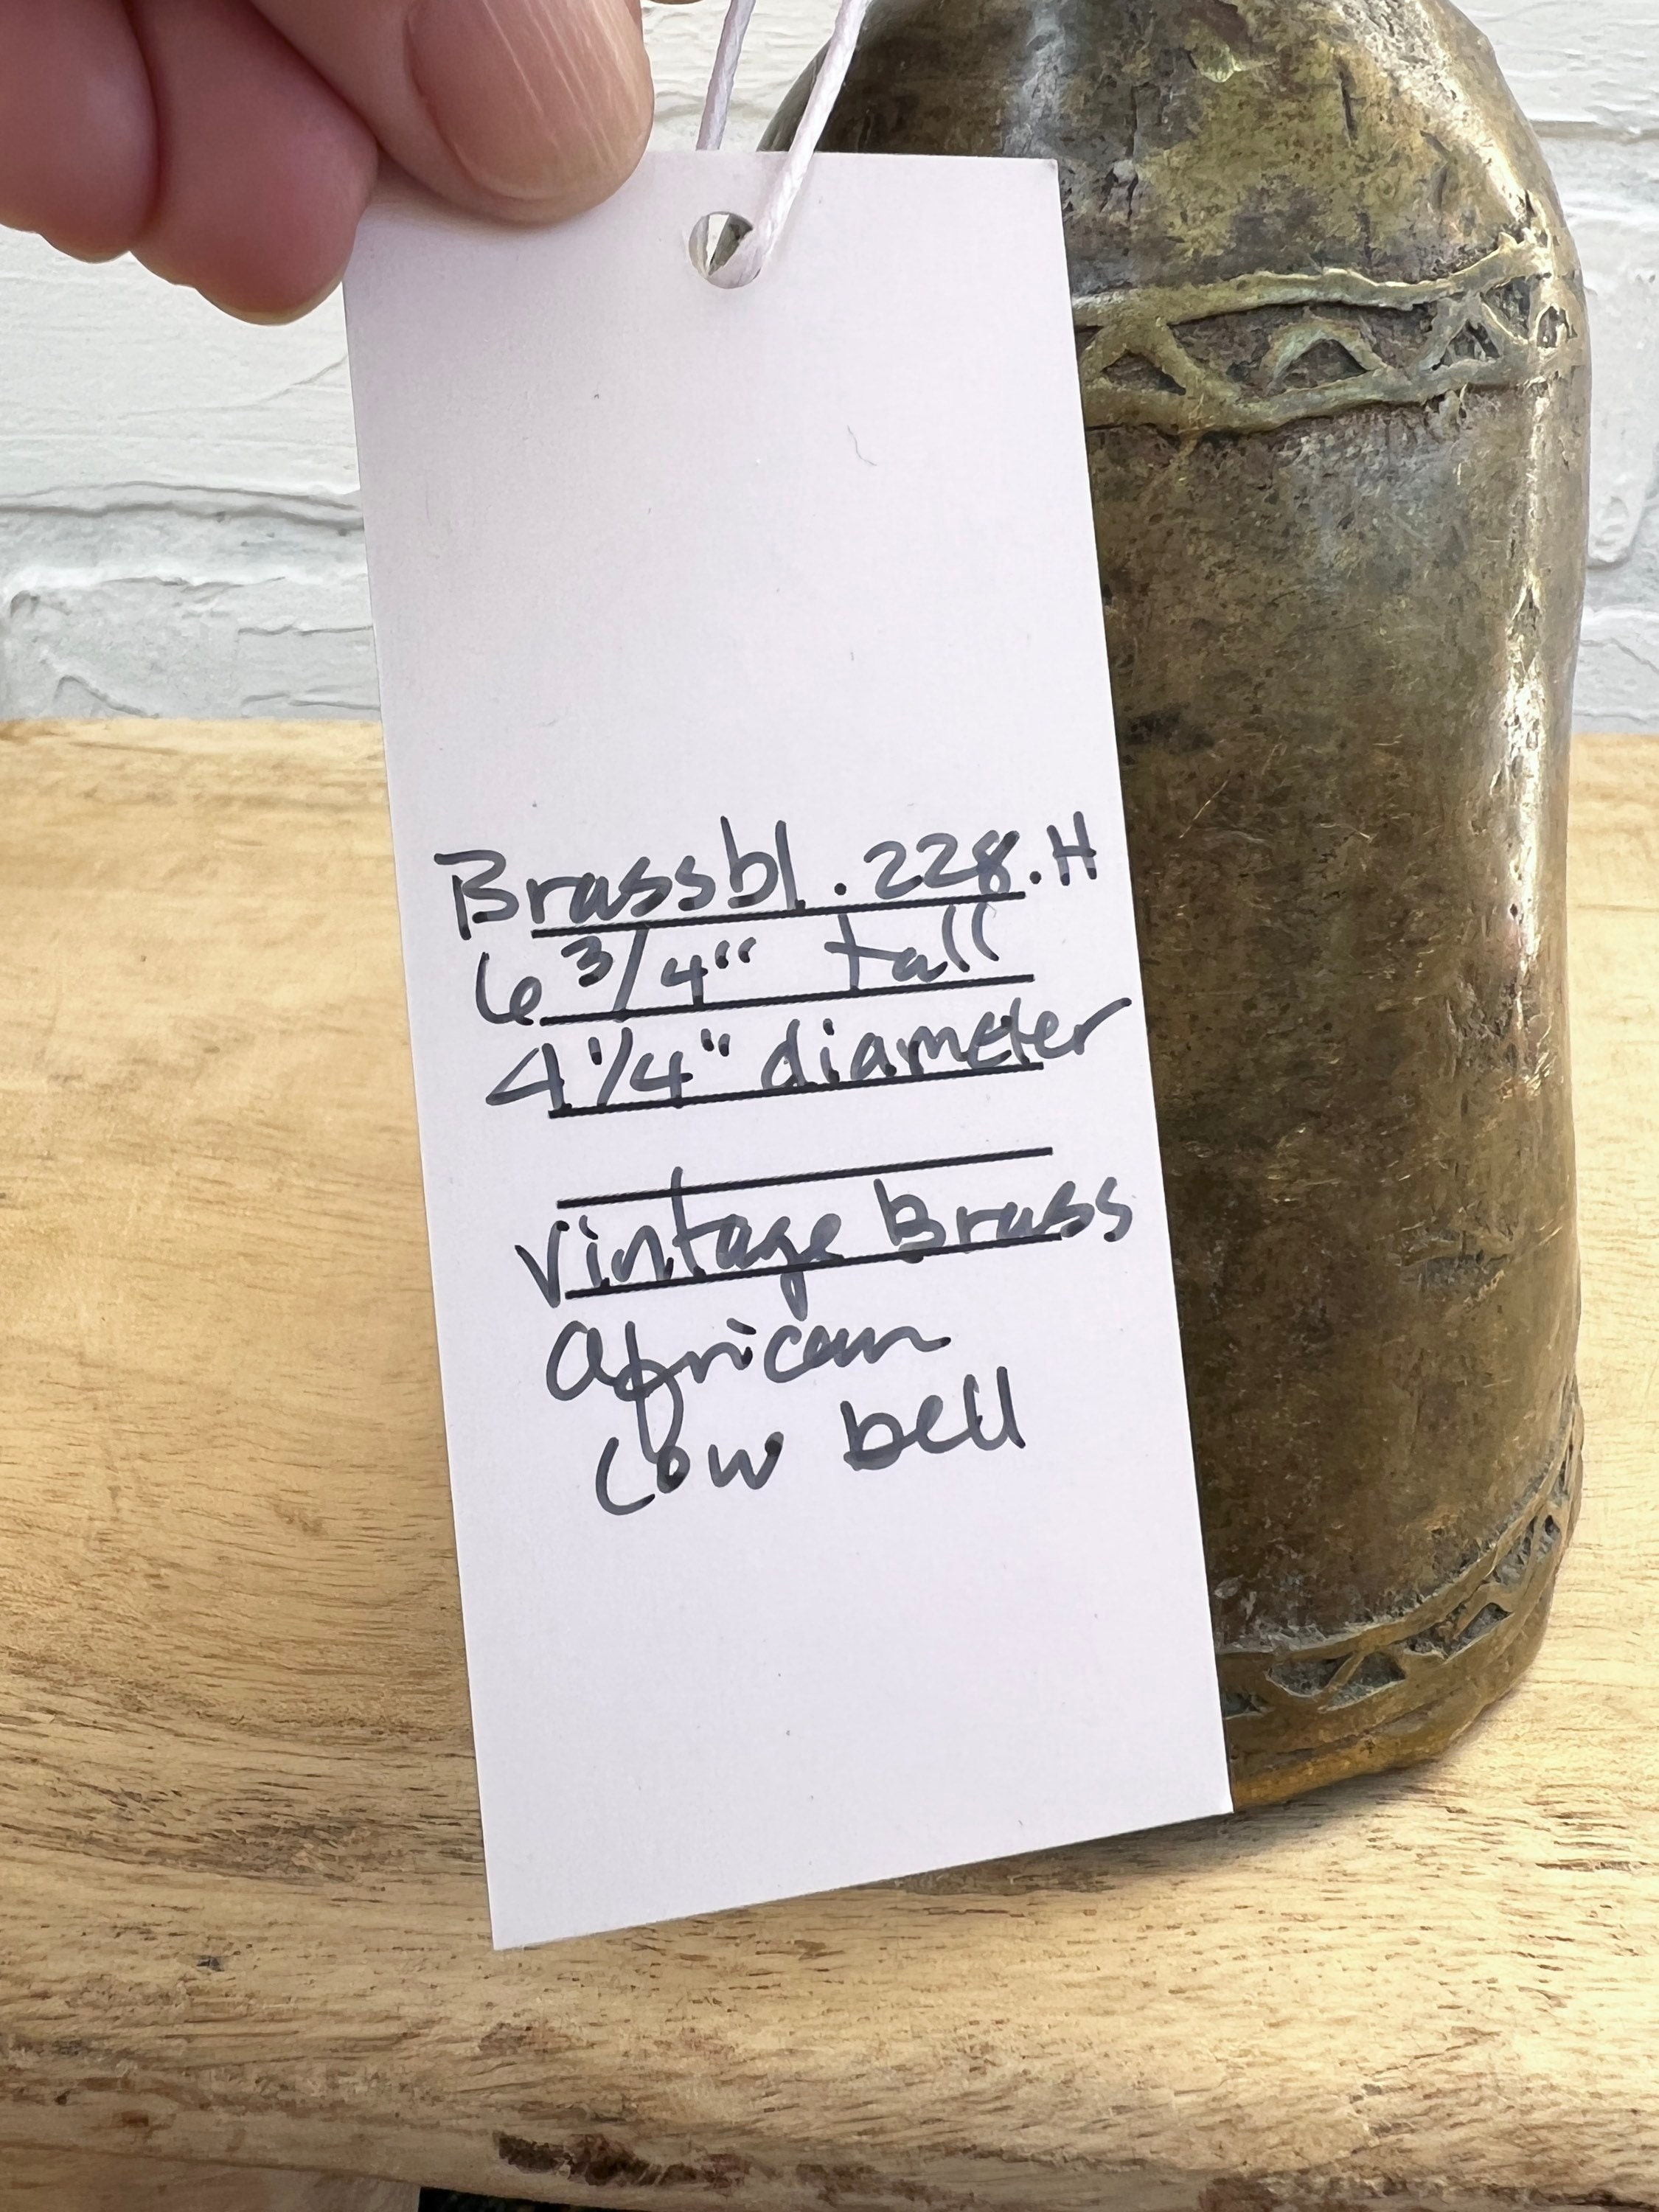 Brassbl.228.H
6 3/4" tall
4 1/4" diameter
Vintage Brass
African
Cow bell